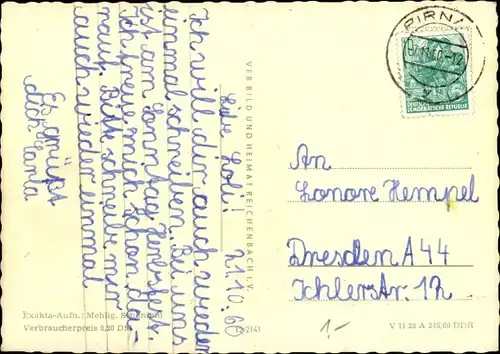 Liebe Loli! 21.10.60
Ich will dir auch wieder
einmal schreiben. Bei uns
ist am Sonntag Herbstfest.
Ich freue mich schon da-
rauf. Bitte schreibe mir
auch wieder einmal
Es grüßt
dich Carla
VEB BILD UND HEIMAT REICHENBACH I. V.
PIRNA
DEUTSCHE
DEMOKRATISCHE REPUBLIK
An
Lonore Hempel
Dresden A 44
Ichlerstr. 12
1.-
Exakta-Aufn.: Mehlig,
Verbraucherpreis 0,20 DM
V 11 28 A 215/60 DDR